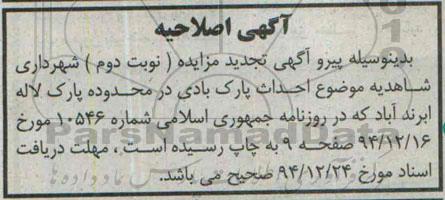 آگهی اصلاحیه
بدینوسیله پیرو آگهی تجدید مزایده ( نوبت دوم ) شهرداری
شاهدیه موضوع احداث پارک بادی در محدوده پارک لاله
ابرند آباد که در روزنامه جمهوری اسلامی شماره ۱۰۵۴۶ مورخ
۹۴/۱۲/۱۶ صفحه ۹ به چاپ رسیده است ، مهلت دریافت
اسناد مورخ ۹۴/۱۲/۲۴ صحیح می باشد.
ParsNamadData